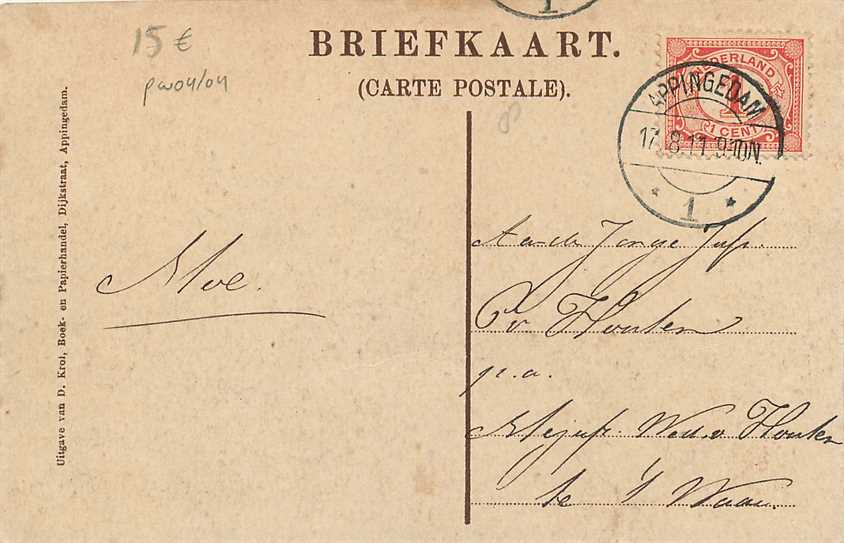 15 €
pw04/04
BRIEFKAART.
(CARTE POSTALE).
NEDERLAND
1
1 CENT
APPINGEDAM
17.8.11. 9-10N.
1
1
Uitgave van D. Krol, Boek- en Papierhandel, Dijkstraat, Appingedam.
Aan de Jonge Jufr.
v. Houten
p.a.
Mejufr. Wed. v Houten
te 't Waar.